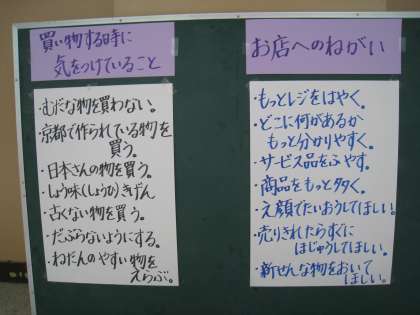 買い物する時に
気をつけていること
・むだな物を買わない。
・京都で作られている物を
買う。
・日本さんの物を買う。
・しょう味(しょうひ)きげん
・古くない物を買う。
・だぶらないようにする。
・ねだんのやすい物を
えらぶ。
お店へのねがい
・もっとレジをはやく。
・どこに何があるか
もっと分かりやすく。
・サービス品をふやす。
・商品をもっと多く。
・え顔でたいおうしてほしい。
・売りきれたらすぐに
ほじゅうしてほしい。
・新せんな物をおいて
ほしい。